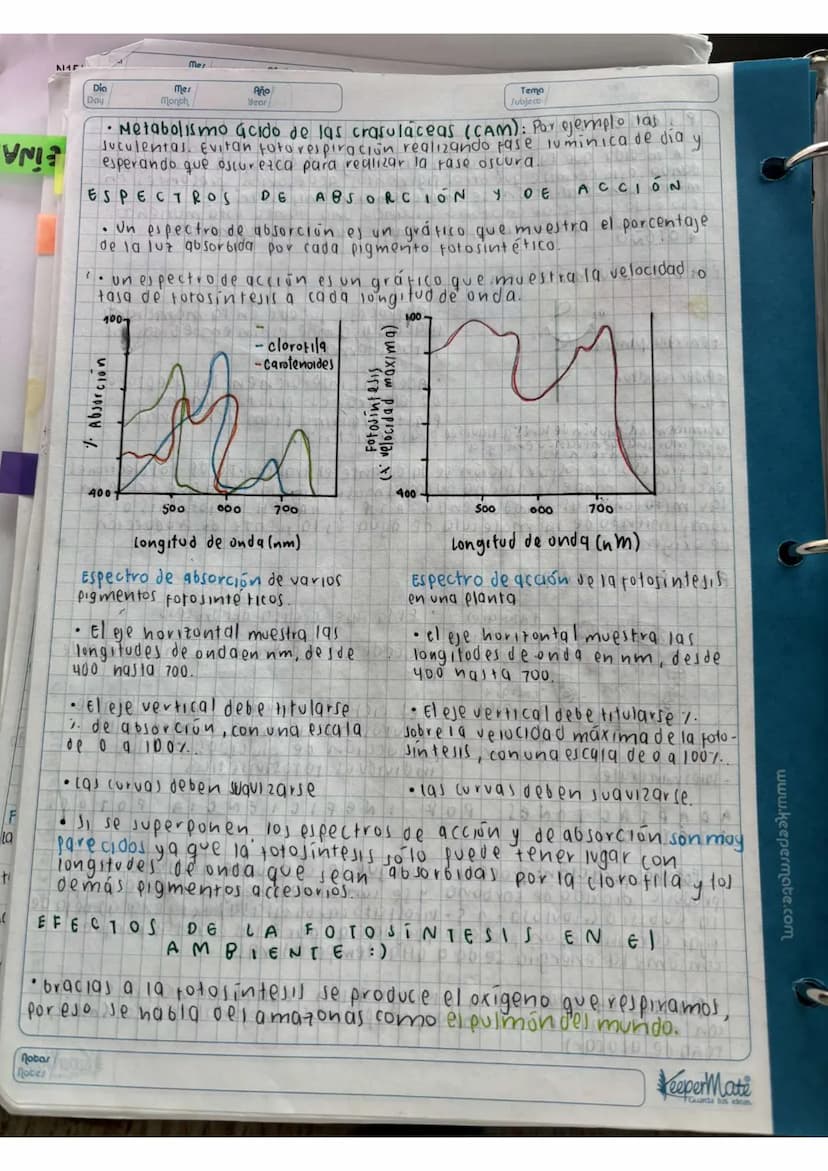 Mes
Día Mes Año Tema
Day Month Year Subject
• Metabolismo ácido de las crasuláceas (CAM): Por ejemplo las
suculentas. Evitan fotorespiración realizando fase lumínica de día y
esperando que oscurezca para realizar la fase oscura.
ESPECTROS DE ABSORCIÓN Y DE ACCIÓN
• Un espectro de absorción es un gráfico que muestra el porcentaje
de la luz absorbida por cada pigmento fotosintético.
• un espectro de acción es un gráfico que muestra la velocidad o
tasa de fotosíntesis a cada longitud de onda.
100
- clorofila
- carotenoides
% Absorción
400
500 600 700
Longitud de onda (nm)
100
Fotosíntesis
(% velocidad máxima)
400
500 600 700
Longitud de onda (nm)
Espectro de absorción de varios
pigmentos fotosintéticos.
• El eje horizontal muestra las
longitudes de onda en nm, desde
400 hasta 700.
• El eje vertical debe titularse
% de absorción, con una escala
de 0 a 100%.
• Las curvas deben suavizarse
Espectro de acción de la fotosíntesis
en una planta
• el eje horizontal muestra las
longitudes de onda en nm, desde
400 hasta 700.
• El eje vertical debe titularse %
sobre la velocidad máxima de la foto-
síntesis, con una escala de 0 a 100%.
• las curvas deben suavizarse.
• Si se superponen, los espectros de acción y de absorción son muy
parecidos ya que la fotosíntesis sólo puede tener lugar con
longitudes de onda que sean absorbidas por la clorofila y los
demás pigmentos accesorios.
EFECTOS DE LA FOTOSÍNTESIS EN El
AMBIENTE :)
• Gracias a la fotosíntesis se produce el oxígeno que respiramos,
por eso se habla del amazonas como el pulmón del mundo.
Notas
Notes
KeeperMate
Guarda tus ideas
www.keepermate.com